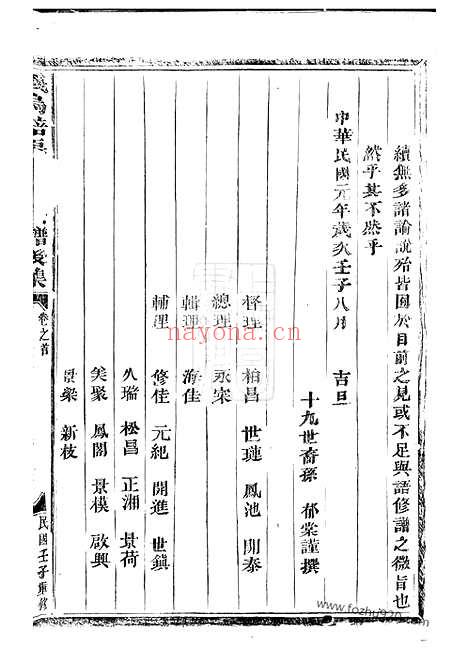 續無多諸論說殆皆囿於目前之見或不足與語修譜之微旨也
然乎其不然乎
中華民國元年歲次壬子八月 吉旦
十九世裔孫 郁棠謹撰
督理 柏昌 世璉 鳳池 開泰
總理 永宋
輯理 海佳
輔理 修佳 元紀 開進 世鎮
久瑞 松昌 正湘 景荷
美聚 鳳閣 景模 啟興
景燊 新枝
譜後集 卷之首 民國壬子重修
nayona.cn
www.fozhu920.com